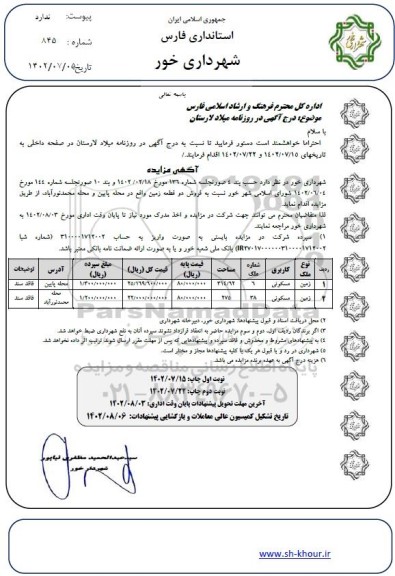 جمهوری اسلامی ایران
استانداری فارس
شهرداری خور
پیوست: ندارد
شماره: ۸۴۵
تاریخ: ۱۴۰۲/۰۷/۰۵
باسمه تعالی
اداره کل محترم فرهنگ و ارشاد اسلامی فارس
موضوع: درج آگهی در روزنامه میلاد لارستان
با سلام
احتراما خواهشمند است دستور فرمایید تا نسبت به درج آگهی در روزنامه میلاد لارستان در صفحه داخلی به
تاریخهای ۱۴۰۲/۰۷/۱۵ و ۱۴۰۲/۰۷/۲۲ اقدام فرمایند./
آگهی مزایده
شهرداری خور در نظر دارد حسب بند ۵ صورتجلسه شماره ۱۳۶ مورخ ۱۴۰۲/۰۲/۱۸ و بند ۱۰ صورتجلسه شماره ۱۴۴ مورخ
۱۴۰۲/۰۶/۰۴ شورای اسلامی شهر خور نسبت به فروش دو قطعه زمین واقع در محله پایین و محله محمدنوراباد، از طریق
مزایده اقدام نماید.
لذا متقاضیان محترم می توانند جهت شرکت در مزایده و اخذ مدرک مورد نیاز تا پایان وقت اداری مورخ ۱۴۰۲/۰۸/۰۳ به
شهرداری خور مراجعه نمایند.
۱) سپرده شرکت در مزایده بایستی به صورت واریز به حساب ۳۱۰۰۰۰۱۷۱۴۰۰۲ (شماره شبا
بانک ملی شعبه خور و یا به صورت ارائه ضمانت نامه بانکی معتبر باشد.
ردیف نوع ملک کاربری شماره ملک مساحت قیمت پایه (ریال) قیمت کل (ریال) مبلغ سپرده (ریال) آدرس توضیحات
۱ زمین مسکونی ۹ ۳۱۴/۹۲ ۸۰/۰۰۰/۰۰۰ ۲۵/۱۹۳/۶۰۰/۰۰۰ ۱/۳۰۰/۰۰۰/۰۰۰ محله پایین فاقد سند
۲ زمین مسکونی ۳۸ ۲۷۵ ۸۰/۰۰۰/۰۰۰ ۲۲/۰۰۰/۰۰۰/۰۰۰ ۱/۲۰۰/۰۰۰/۰۰۰ محله محمدنوراباد فاقد سند
۲) محل دریافت اسناد و قبول پیشنهادها: شهرداری خور، دبیرخانه شهرداری
۳) اگر برندگان ردیف اول، دوم و سوم مزایده حاضر به انعقاد قرارداد نشوند سپرده آنان به نفع شهرداری ضبط خواهد شد.
۴) به پیشنهادهای مشروط و مخدوش و فاقد سپرده و پیشنهادهایی که پس از مهلت مقرر ارسال شوند ترتیب اثر داده نخواهد شد.
۵) شهرداری در رد و یا قبول هر یک یا کلیه پیشنهادها مجاز و مختار است.
۶) هزینه درج آگهی به عهده برنده مزایده می باشد.
نوبت اول چاپ: ۱۴۰۲/۰۷/۱۵
نوبت دوم چاپ: ۱۴۰۲/۰۷/۲۲
آخرین مهلت تحویل پیشنهادات پایان وقت اداری: ۱۴۰۲/۰۸/۰۳
تاریخ تشکیل کمیسیون عالی معاملات و بازگشایی پیشنهادات: ۱۴۰۲/۰۸/۰۶
سیدعبدالحمید مظفری نیاپور
شهردار خور
www.sh-khour.ir
ParsNamadData
پایگاه اطلاع رسانی مناقصه و مزایده